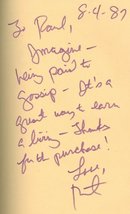 To Paul, 8-4-87
Imagine -
being paid to
gossip - It's a
great way to earn
a living - Thanks
for the purchase!
Love,